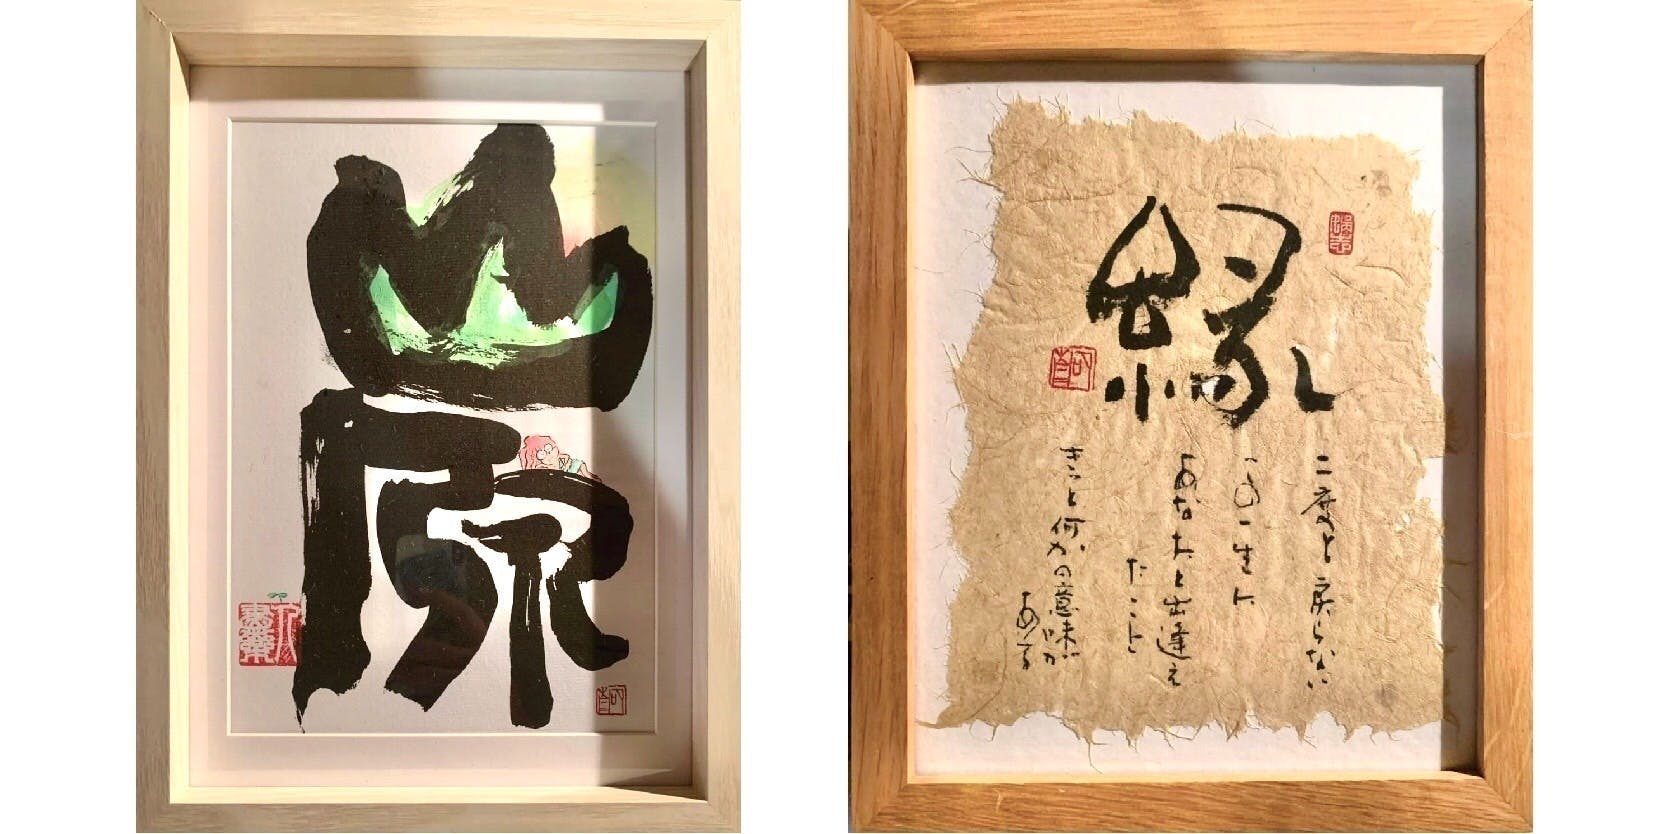 縁
二度と戻らない
この一生に
あなたと出逢え
たこと
きっと何かの意味が
ある